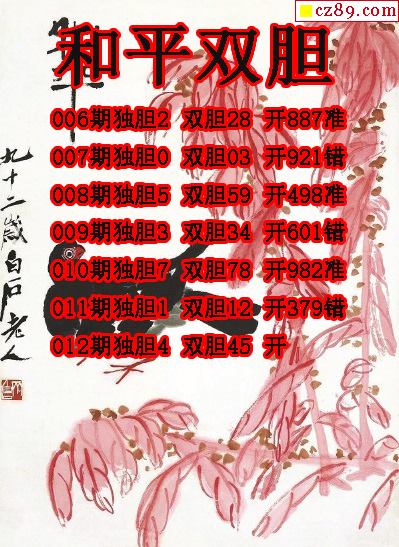 cz89.com
和平双胆
006期独胆2 双胆28 开887准
007期独胆0 双胆03 开921错
008期独胆5 双胆59 开498准
009期独胆3 双胆34 开601错
010期独胆7 双胆78 开982准
011期独胆1 双胆12 开379错
012期独胆4 双胆45 开
九十二岁白石老人